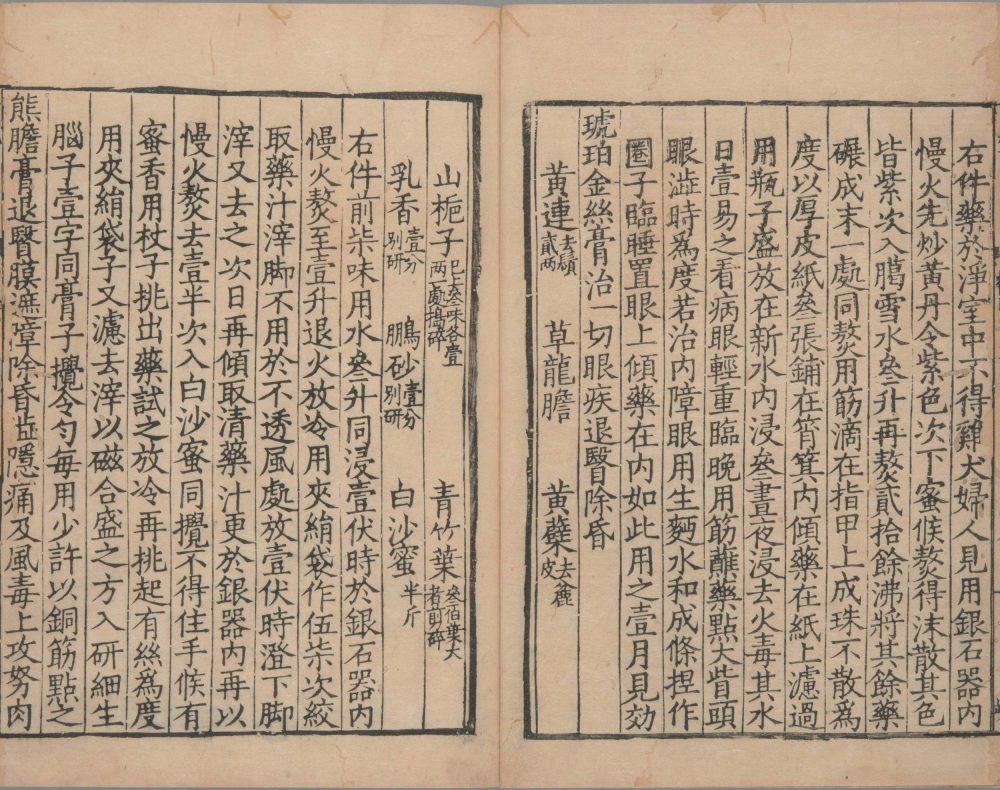 右件藥於淨室中不得雞犬婦人見用銀石器內
慢火先炒黃丹令紫色次下蜜候熬得沫散其色
皆紫次入臈雪水叄升再熬貳拾餘沸將其餘藥
碾成末一處同熬用筋滴在指甲上成珠不散爲
度以厚皮紙叄張鋪在筲箕內傾藥在紙上濾過
用瓶子盛放在新水內浸叄晝夜浸去火毒其水
日壹易之看病眼輕重臨晚用筋蘸藥點大眥頭
眼澁時爲度若治內障眼用生麪水和成條捏作
圈子臨睡置眼上傾藥在內如此用之壹月見効
琥珀金絲膏治一切眼疾退瞖除昏
黃連去鬚貳兩 草龍膽 黃蘗去麄皮
山梔子已上叄味各壹两一處搗碎 青竹葉
乳香壹分別研 鵬砂壹分別研 白沙蜜半斤
右件前柒味用水叄升同浸壹伏時於銀石器內
慢火熬至壹升退火放冷用夾絹袋作伍柒次絞
取藥汁滓脚不用於不透風處放壹伏時澄下脚
滓又去之次日再傾取清藥汁更於銀器內再以
慢火熬去壹半次入白沙蜜同攪不得住手候有
蜜香用杖子挑出藥試之放冷再挑起有絲爲度
用夾絹袋子又濾去滓以磁合盛之方入研細生
腦子壹字同膏子攪令勻每用少許以銅筋點之
熊膽膏退瞖膜遮障除昏暗隱痛及風毒上攻努肉